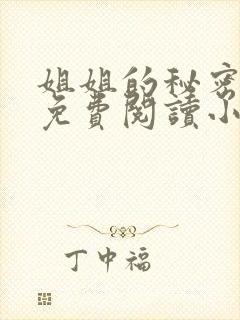 姐姐的秘密
免費閱讀小
丁中福